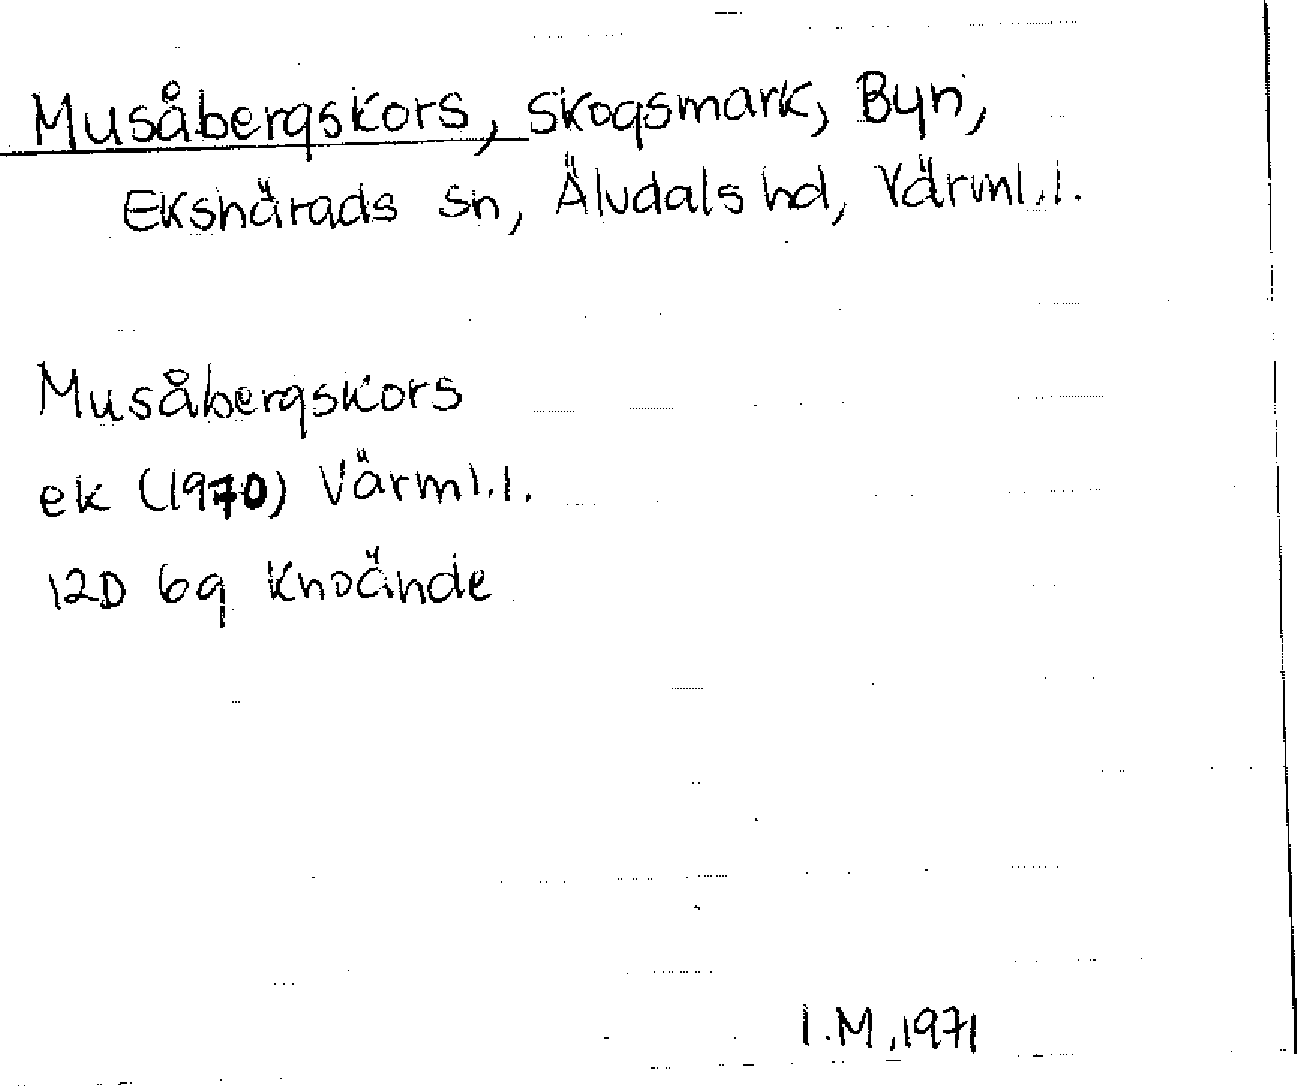 Musåbergskors, Skogsmark, Byn,
Ekshärads sn, Älvdals hd, Värml.l.
Musåbergskors
ek (1970) Värml.l.
12D 6g Knoände
I.M, 1971